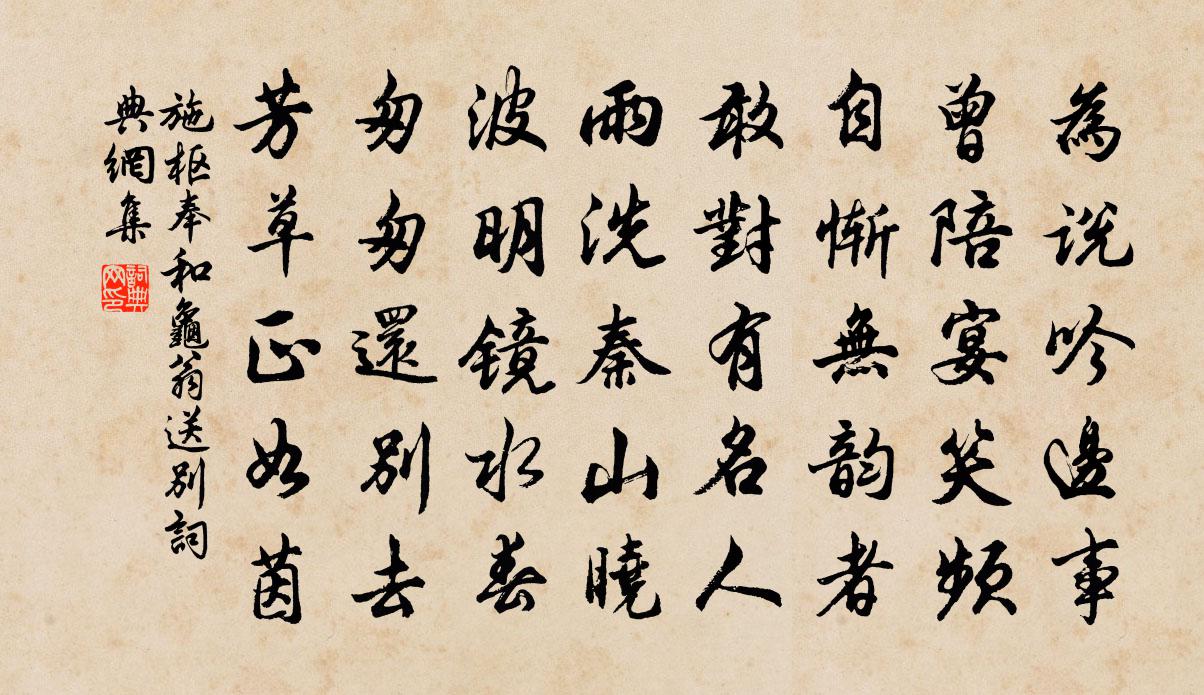 為說吟邊事
曾陪宴笑頻
自慚無韵者
敢對有名人
雨洗秦山曉
波明鏡水春
匆匆還別去
芳草正如茵
施樞奉和龜翁送別詞
典網集
詞典
网印